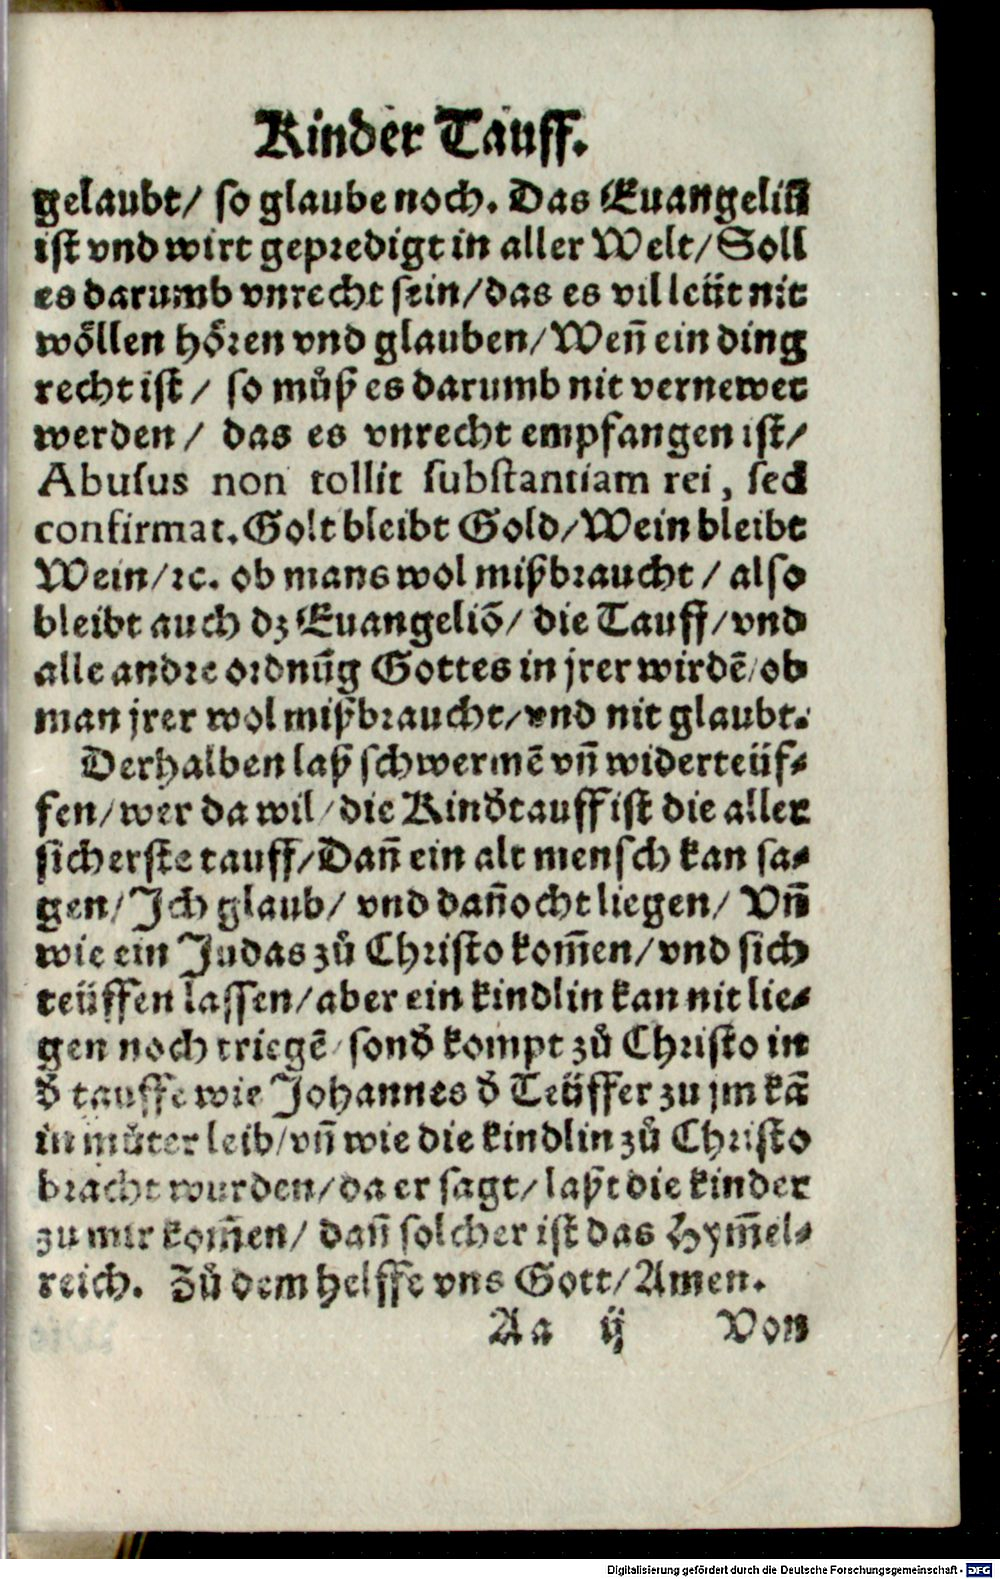 Kinder Tauff.
gelaubt/ so glaube noch. Das Euangeliū
ist vnd wirt gepredigt in aller Welt/Soll
es darumb vnrecht sein/das es vil leüt nit
wöllen hören vnd glauben/Weñ ein ding
recht ist/ so můß es darumb nit vernewet
werden/ das es vnrecht empfangen ist/
Abusus non tollit substantiam rei, sed
confirmat. Golt bleibt Gold/Wein bleibt
Wein/ꝛc. ob mans wol mißbraucht/also
bleibt auch dz Euangeliō/ die Tauff/vnd
alle andre ordnūg Gottes in jrer wirdē/ob
man jrer wol mißbraucht/vnd nit glaubt.
Derhalben laß schwermē vñ widerteüf⸗
fen/wer da wil/die Kindtauff ist die aller
sicherste tauff/Dañ ein alt mensch kan sa⸗
gen/Ich glaub/ vnd dañocht liegen/ Vñ
wie ein Judas zů Christo kom̄en/vnd sich
teüffen lassen/aber ein kindlin kan nit lie⸗
gen noch triegē/sond̄ kompt zů Christo in
d̄ tauffe wie Johannes d̄ Teüffer zu jm kā
in můter leib/vñ wie die kindlin zů Christo
bracht wurden/da er sagt/laßt die kinder
zu mir kom̄en/ dañ solcher ist das Hym̄el⸗
reich. Zů dem helffe vns Gott/Amen.
Aa ij Von
Digitalisierung gefördert durch die Deutsche Forschungsgemeinschaft - DFG